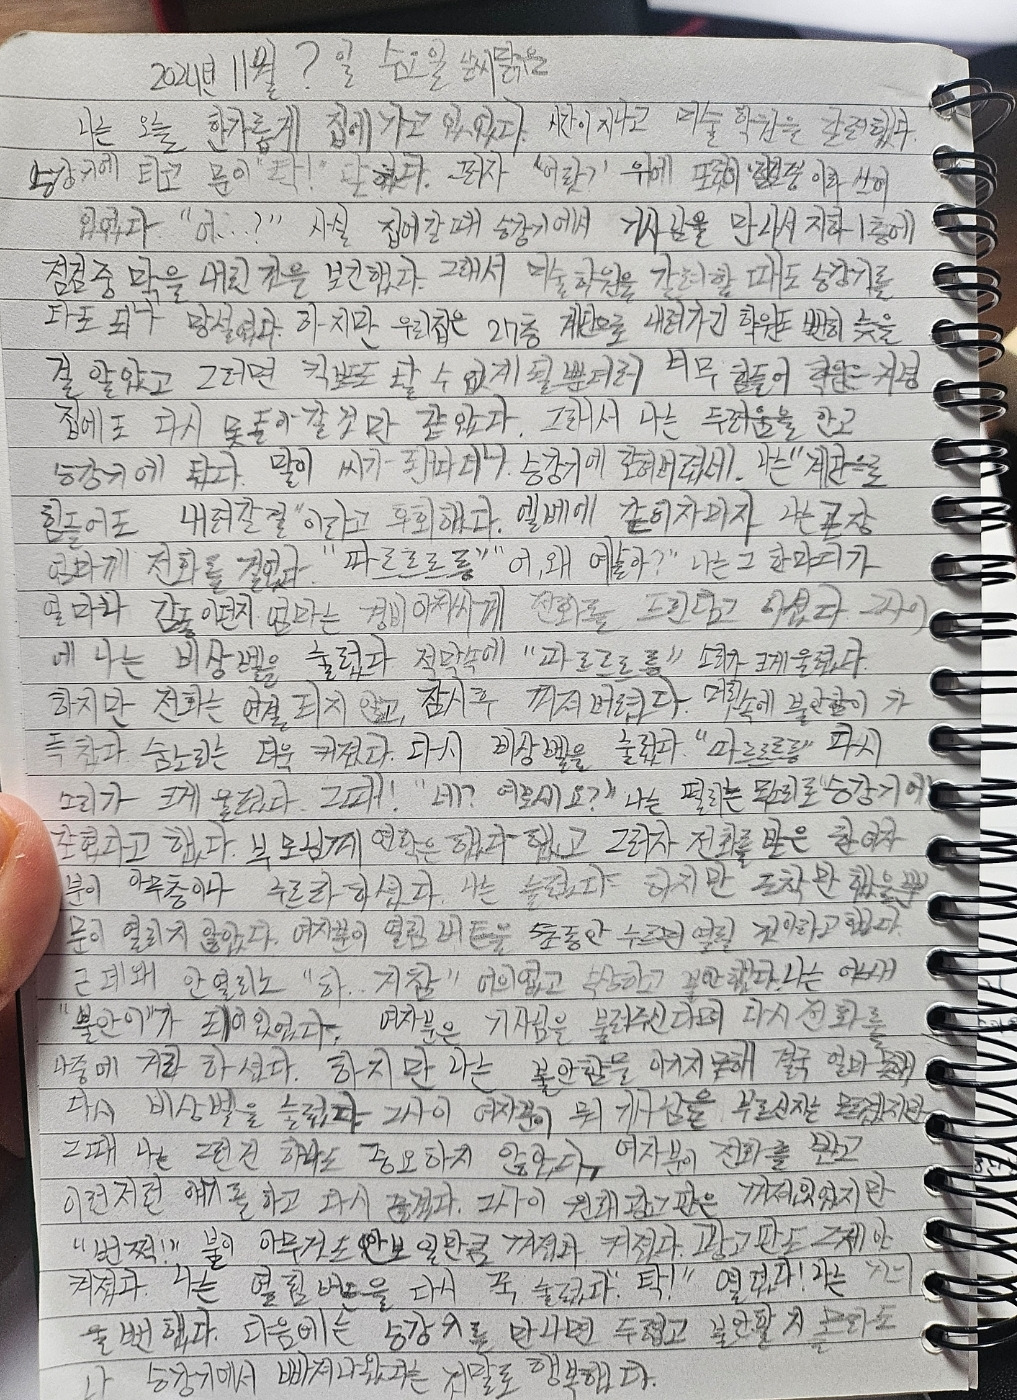 2024년 11월 ? 일 수요일 날씨맑음
나는 오늘 한가롭게 집에 가고 있었다. 시간이 지나고 미술 학원을 갈려했다.
승강기에 타고 문이 "탁!" 닫혔다. 그러자 '어랏?' 위에 점중 이라 쓰여
있었다 "어...?" 사실 집에갈 때 승강기에서 기사님을 만나서 지하 1층에
점검중 막을 내린 것을 보긴했다. 그래서 미술학원을 갈려 할 때도 승강기를
타도 되나 망설였다 하지만 우리집은 27층 계단으로 내려가긴 학원도 뻔히 늦을
걸 알았고 그러면 킥보드도 탈 수 없게 될뿐더러 너무 힘들어 학원은 커녕
집에도 다시 못돌아 갈 것만 같았다. 그래서 나는 두려움을 안고
승강기에 탔다. 말이 씨가 된다더니. 승강기에 갇혀버렸네. 나는 "계단으로
힘들어도 내려갈걸"이라고 후회했다. 엘베에 갇히자마자 나는 곧장
엄마께 전화를 걸었다. "따르르르릉" "어, 왜 예솔아?" 나는 그 한마디가
얼마나 감동이던지 엄마는 경비아저씨께 전화를 드린담고 하셨다 그사이
에 나는 비상벨을 눌렀다 적막속에 "따르르르릉" 소리가 크게 울렸다.
하지만 전화는 연결 되지 않고, 잠시후 꺼져 버렸다. 머릿속에 불안함이 가
득 찼다. 숨소리는 더욱 커졌다. 다시 비상벨을 눌렀다. "따르르르릉" 다시
소리가 크게 울렸다. 그때! "네? 여보세요?" 나는 떨리는 목소리로 "승강기에
갇혔다고 했다. 부모님께 연락은 했다 했고 그러자 전화를 받은 한 여자
분이 아무층이나 누르라 하셨다. 나는 눌렀다 하지만 도착만 했을뿐
문이 열리지 않았다. 여자분이 열림 버튼을 동안 누르면 열릴 것이라고 했다.
근데 왜 안열리노 "하.. 지참" 어이없고 속상하고 불안했다. 나는
"불안이"가 되어 있었다. 여자분은 기사님을 불러주신다며 다시 전화를
나중에 걸라 하셨다. 하지만 나는 불안함을 이기지 못해 결국
다시 비상벨을 눌렀다 그사이 여자분이 뭐 기사님을 부르신지는 모르겠지만
그때 나는 그런건 하나도 중요하지 않았다, 여자분이 전화를 받고
이런저런 얘기를 하고 다시 끊겼다. 그사이 원래 광고판은 꺼져있었지만
"번쩍!!" 불이 아무거도 안보일만큼 꺼졌다 켜졌다. 광고판도 그제야
켜졌다. 나는 열림 버튼을 다시 꾹 눌렀다 "탁!" 열렸다! 나는
울뻔했다. 다음에는 승강기를 만나면 두렵고 불안할지
나 승강기에서 빠져나왔다는 정말로 행복했다.